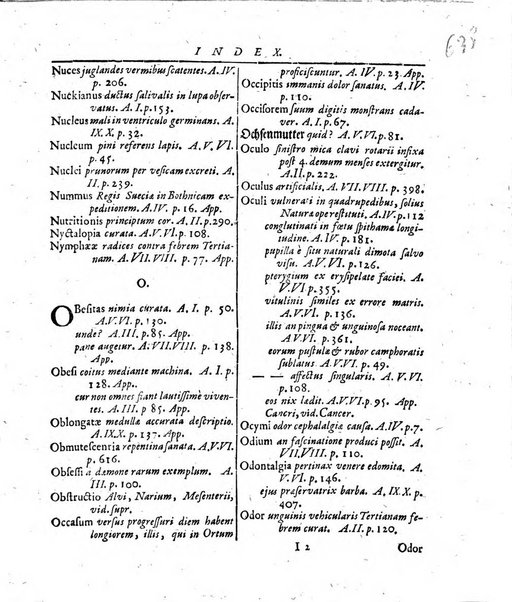 INDEX.
Nuces juglandes vermibus scatentes. A. IV.
p. 206.
Nuckianus ductus salivalis in lupa obser-
vatus. A. I. p. 153.
Nucleus mali in ventriculo germinans. A.
IX. X. p. 32.
Nucleum pini referens lapis. A. V. VI.
p. 45.
Nuclei prunorum per vesicam excreti. A.
II. p. 239.
Nummus Regis Sueciæ in Bothnicam ex-
peditionem. A. IV. p. 16. App.
Nutritionis principium cor. A. II. p. 290.
Nyctalopia curata. A. V. VI. p. 108.
Nymphææ radices contra febrem Tertia-
nam. A. VII. VIII. p. 77. App.
O.
OBesitas nimia curata. A. I. p. 50.
A. V. VI. p. 130.
unde? A. III. p. 85. App.
pane augetur. A. VII. VIII. p. 138.
App.
Obesi coitus mediante machina. A. I. p.
128. App.
cur non omnes fiant lautissime viven-
tes. A. III. p 85. App.
Oblongatæ medullæ accurata descriptio.
A. IX. X. p. 137. App.
Obmutescentia repentina sanata. A. V. VI.
p. 616.
Obsessi a dæmone rarum exemplum. A.
III. p. 100.
Obstructio Alvi, Narium, Mesenterii,
vid. supr.
Occasum versus progressuri diem habent
longiorem, illis, qui in Ortum
proficiscuntur. A. IV. p. 23. App.
Occipitis immanis dolor sanatus. A. IV.
p. 110.
Occisorem suum digitis monstrans cada-
ver. A. I. p. 67.
Ochsenmutter quid? A. V. VI. p. 81.
Oculo sinistro mica clavi rotarii infixa
post 4. demum menses extergitur.
A. II. p. 222.
Oculus artificialis. A. VII. VIII. p. 398.
Oculi vulnerati in quadrupedibus, solius
Naturæ ope restituti. A. IV. p. 112
conglutinati in fœtu spithamæ longi-
tudine. A. IV. p. 181.
pupilla è situ naturali dimota salvo
visu. A. V. VI. p. 126.
pterygium ex erysipelate faciei. A.
V. VI p. 355.
vitulinis similes ex errore matris.
A. V. VI. p. 136.
illis an pingua & unguinosa noceant.
A. V. VI. p. 361.
eorum pustulæ & rubor camphoratis
sublatus. A. V. VI. p. 49.
— — affectus singularis. A. V. VI.
p. 108.
eos nix lædit. A. V. VI. p. 95. App.
Cancri, vid. Cancer.
Ocymi odor cephalalgiæ causa. A. IV. p. 7.
Odium an fascinatione produci possit. A.
VII. VIII. p. 110.
Odontalgia pertinax venere edomita. A.
V. VI. p. 146.
ejus præservatrix barba. A. IX. X. p.
407.
Odor unguinis vehicularis Tertianam fe-
brem curat. A. II. p. 120.
I 2
Odor